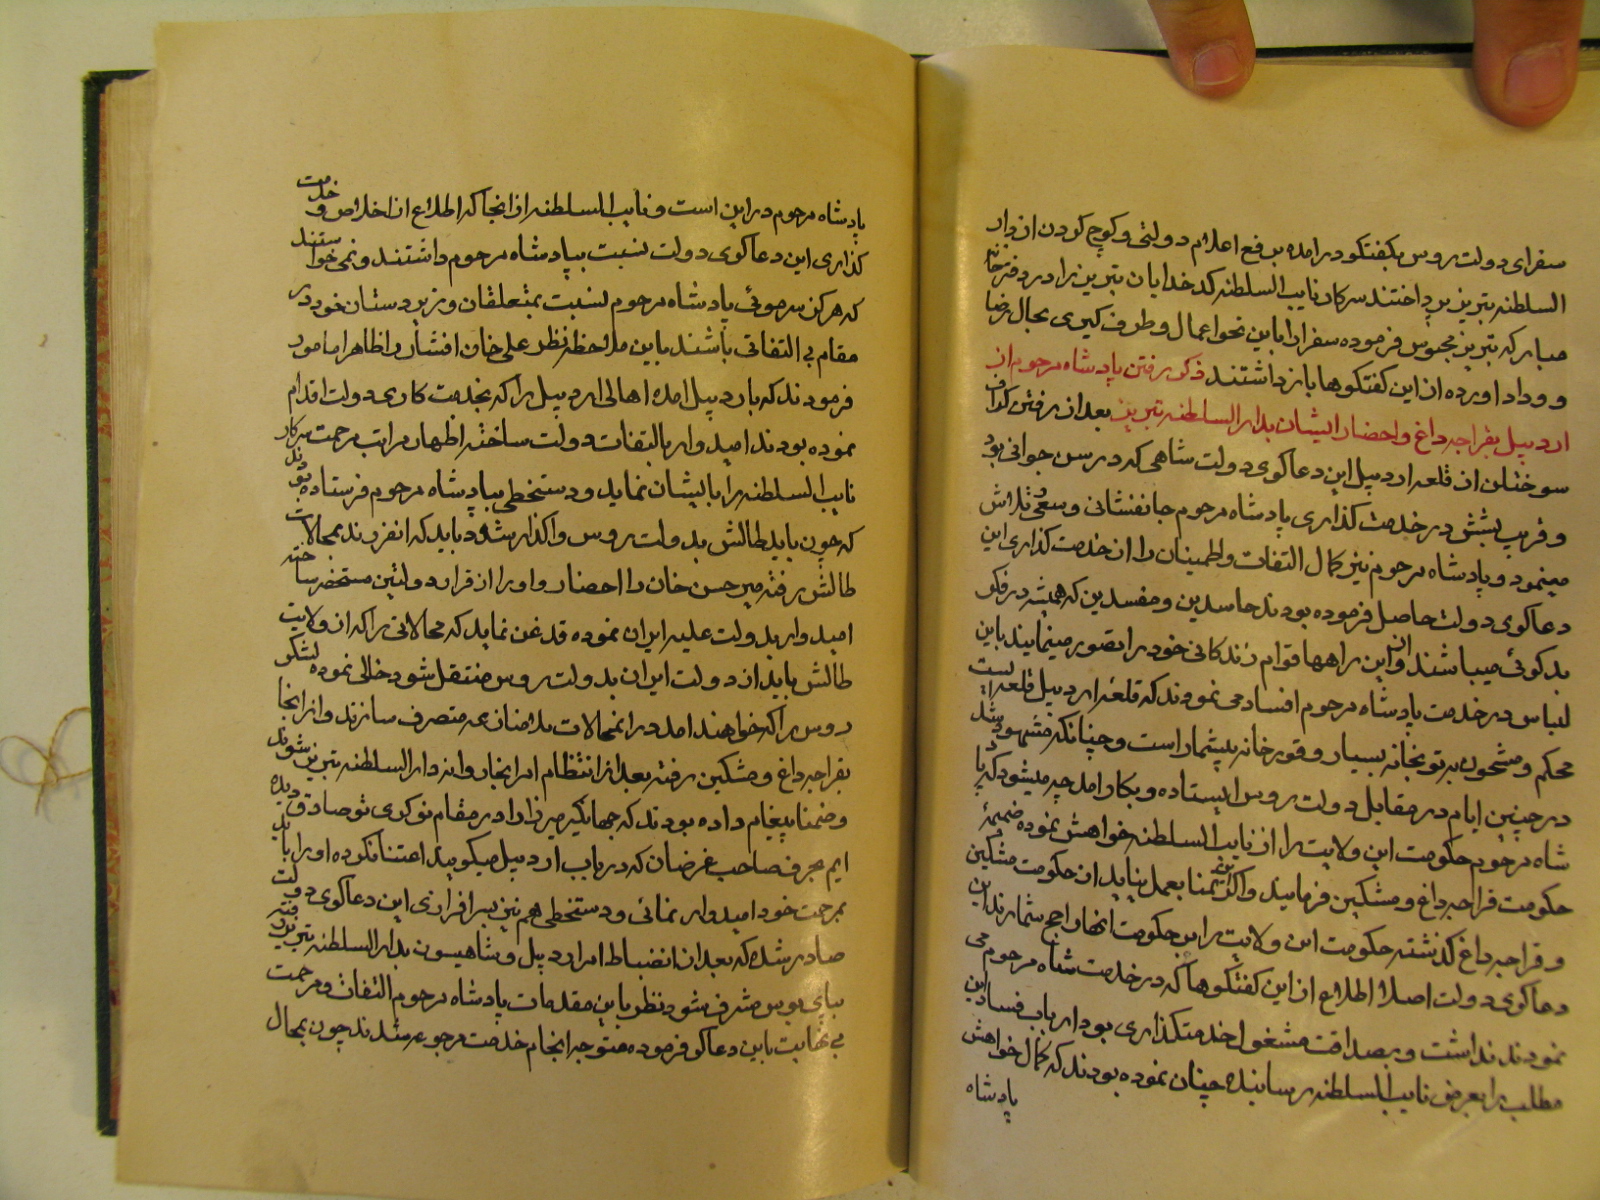 سفرای دولت روس بکفتکو درامده برفع اعلام دولتی و کوچ کردن از دار
السلطنه تبریز پرداختند سرکار نایب السلطنه کدخدایان تبریز را در دفترخانه
مبارکه تبریز محبوس فرموده سفرا را باین نحو اعمال و طرف کیری بحال رضا
و وداد اورده از این کفتکوها باز داشتند ذکر رفتن پادشاه مرحوم از
اردبیل بقراجه داغ و احضار ایشان بدار السلطنه تبریز بعد از رفتن کراف
سوختلن از قلعه اردبیل این دعاکوی دولت شاهی که در سن جوانی بود
و قریب بشش در خدمت کذاری پادشاه مرحوم جانفشانی و سعی و تلاش
مینمود و پادشاه مرحوم نیز کمال التفات و اطمینان را از خدمت کذاری این
دعاکوی دولت حاصل فرموده بودند حاسدین و مفسدین که همیشه در فکر
بدکوئی میباشند و از این راهها قوام زندکانی خود را تصور مینمایند باین
لباس در خدمت پادشاه مرحوم افساد می نمودند که قلعه اردبیل قلعه ایست
محکم و مشحون بر توپخانه بسیار و قورخانه بیشمار است و چنانکه مشهود شد
در چنین ایام در مقابل دولت روس ایستاده و بکار امد چه میشود که پا
شاه مرحوم حکومت این ولایت را از نایب السلطنه خواهش نموده ضمیمهٔ
حکومت قراجه داغ و مشکین فرمایند و اکر این تمنا بعمل نیاید از حکومت مشکین
و قراجه داغ کذشته حکومت این ولایت را بر حکومت انها راجح شمارند این
دعاکوی دولت اصلا اطلاع از این کفتکوها که در خدمت شاه مرحوم می
نمودند نداشت و بصداقت مشغول خدمتکذاری بود ارباب فساد این
مطلب را بعرض نایب السلطنه رسانیده چنان نموده بودند که کمال خواهش
پادشاه
پادشاه مرحوم در این است و نایب السلطنه از انجا که اطلاع از اخلاص و خدمت
کذاری این دعاکوی دولت نسبت بپادشاه مرحوم داشتند و نمی خواستند
که هرکز سر موئی پادشاه مرحوم نسبت بمتعلقان و زیردستان خود در
مقام بی التفاتی باشند باین ملاحظه نظر علی خان افشار را ظاهرا مامور
فرمودند که باردبیل امده اهالی اردبیل را که بخدمت کاری دولت اقدام
نموده بودند امیدوار بالتفات دولت ساخته اظهار مراتب مرحمت سرکار
نایب السلطنه را بایشان نماید و دستخطی بپادشاه مرحوم فرستاده بودند
که چون باید طالش بدولت روس واکذار شود باید که انفرزند بمحالات
طالش رفته میر حسن خان را احضار و او را از قرار دولتین مستحضر ساخته
امیدوار بدولت علیه ایران نموده قدغن نماید که محالاتی را که از ولایت
طالش باید از دولت ایران بدولت روس منتقل شود خالی نموده لشکر
روس را که خواهند امد در انمحالات بلا منازعه متصرف سازند و از انجا
بقراجه داغ و مشکین رفته بعد از انتظام امر انجا روانه دار السلطنه تبریز شوند
و ضمنا پیغام داده بودند که جهانکیر میرزا را در مقام نوکری تو صادق دیده
ایم بحرف صاحب غرضان که در باب اردبیل میکویند اعتنا نکرده او را باید
بمرحمت خود امیدوار نمائی و دستخطی هم نیز بسرافرازی این دعاکوی دولت
صادر شده که بعد از انضباط امر اردبیل و شاهیسون بدار السلطنه تبریز رفته
بپای بوس مشرف شود نظر باین مقدمات پادشاه مرحوم التفات و مرحمت
بی نهایت باین دعاکو فرموده متوجه انجام خدمت مرجوعه شدند چون بمحال